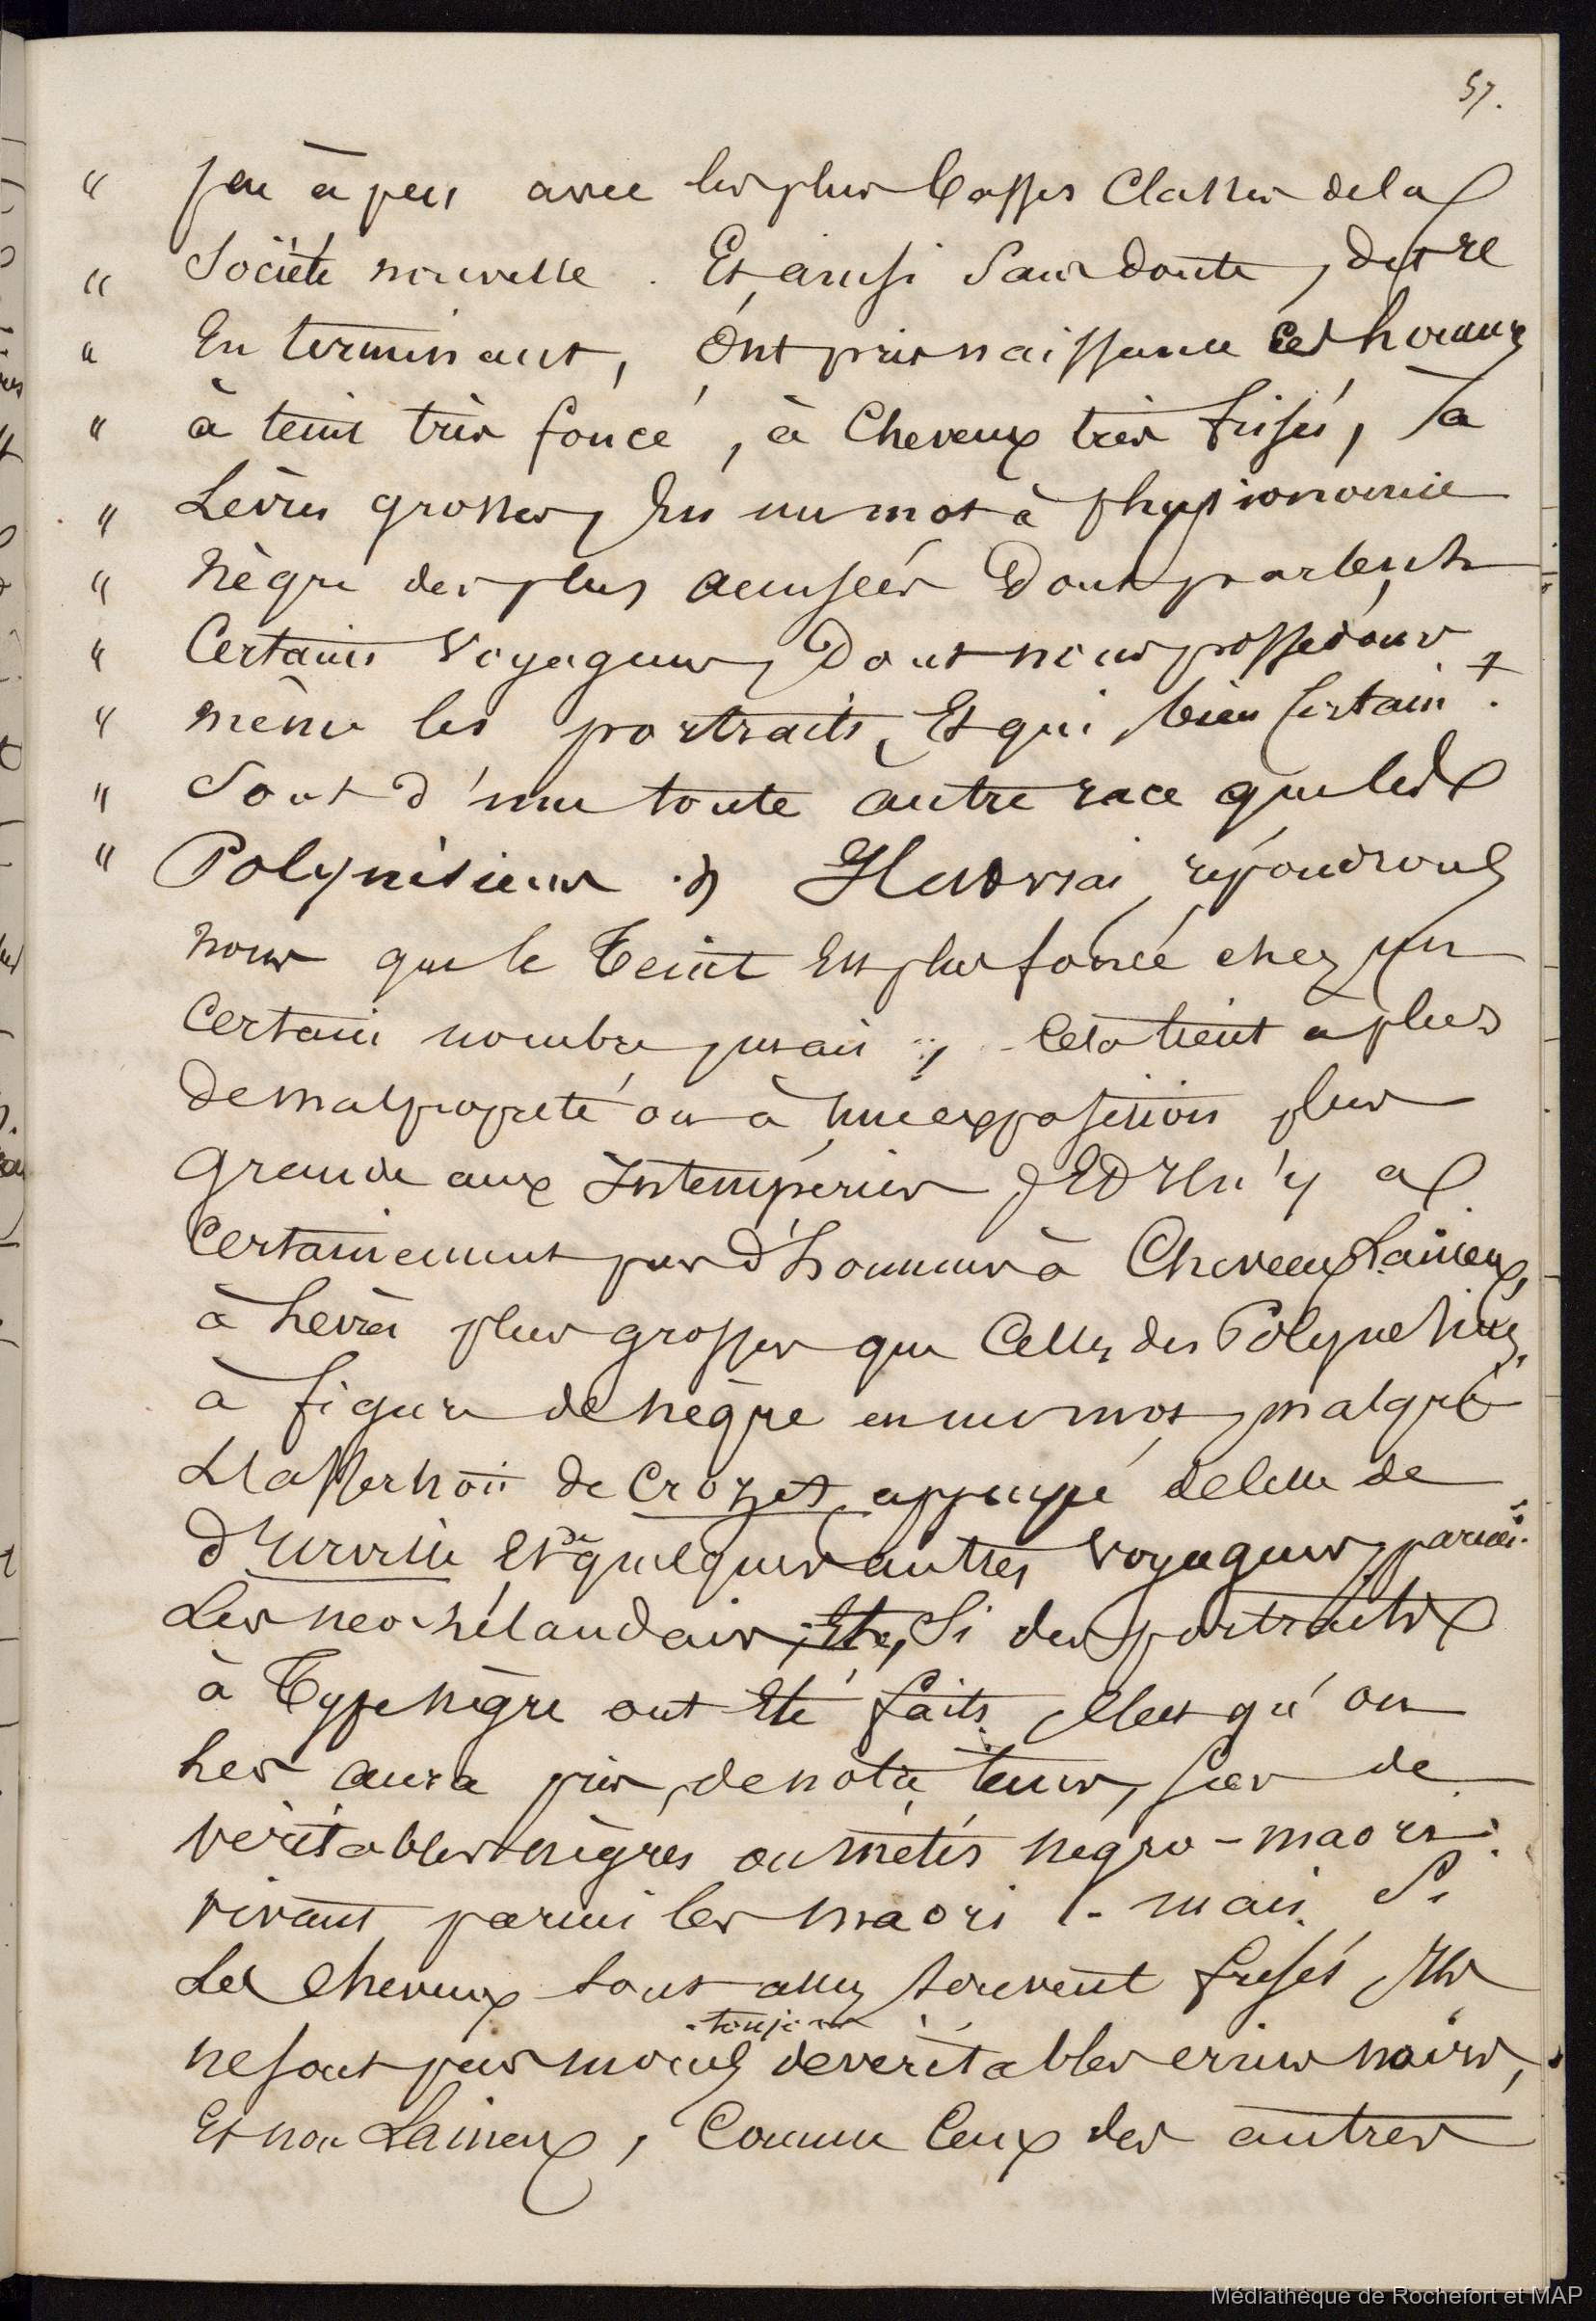 57.
" peu à peu avec les plus basses classes de la
" Société nouvelle. Et ainsi sans doute, dit-il
" En terminant, ont pris naissance ces hommes
" à teint très foncé, à cheveux très frisés, à
" Lèvres grosses, En un mot à physionomie
" Nègre des plus accusées Dont parlent
" Certains voyageurs, Dont nous possédons
" même les portraits, Et qui, bien certain.t
" Sont d'une toute autre race que les
" Polynésiens. » Il est vrai, répondrons
nous que le Teint Est plus foncé chez un
Certain nombre, mais, cela tient à plus
de malpropreté ou à une exposition plus
Grande aux Intempéries; Et Il n'y a
Certainement pas d'hommes à Cheveux Laineux,
à Lèvres plus grosses que Celles des Polynésiens,
à figure de nègre en un mot, malgré
L'assertion de Crozet, appuyée de celle de
d'Urville Et de quelques autres voyageurs, parmi
Les néo-zélandais; Et, Si des portraits
à Type nègre ont Eté faits, c'est qu'on
Les aura pris, de notre temps, sur de
véritables nègres ou métis négro-maoris
vivant parmi les maori. - mais Si
Les Cheveux sont assez souvent frisés, Ils
toujours
ne sont pas moins de véritables crins noirs,
Et non Laineux, Comme Ceux des autres
Médiathèque de Rochefort et MAP